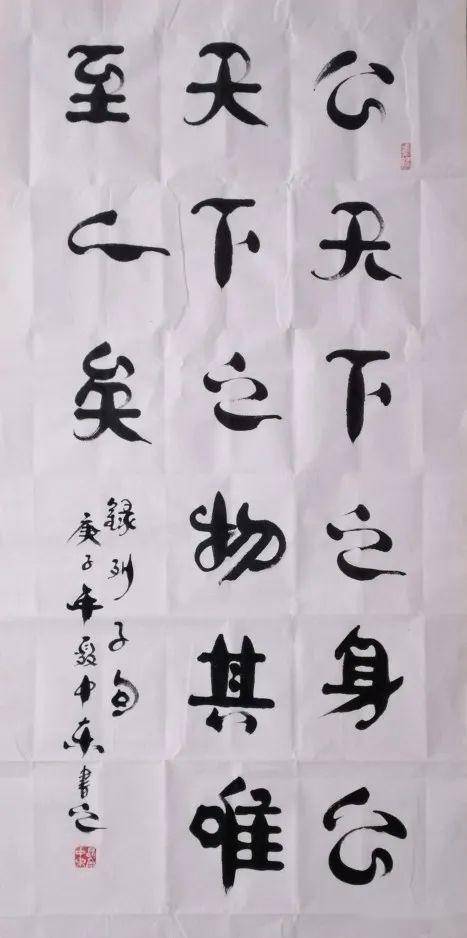 公天下之身公
天下之物其唯
至人矣
録列子句
庚子年夏中东書之